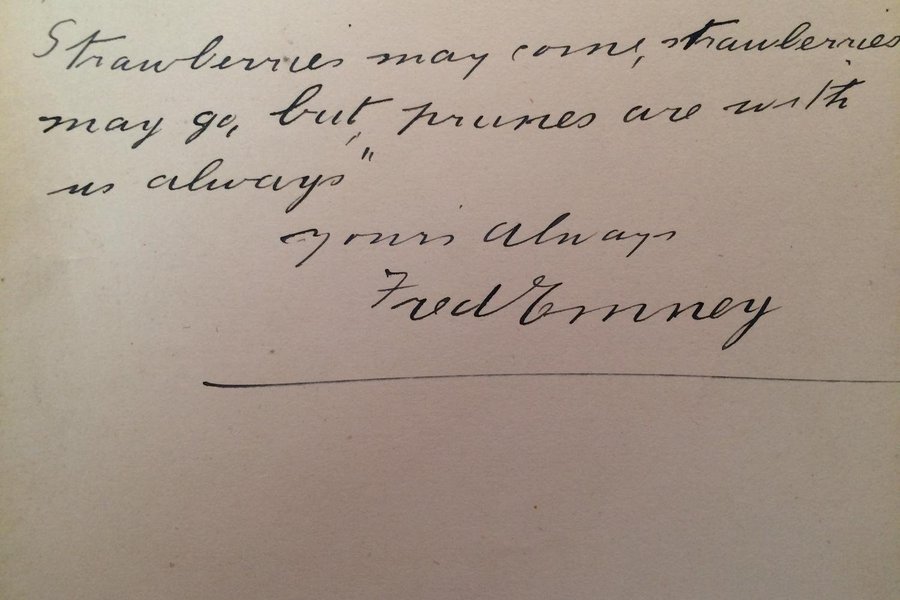 Strawberries may come, strawberries
may go, but, prunes are with
us always"
yours Always
Fred Emney